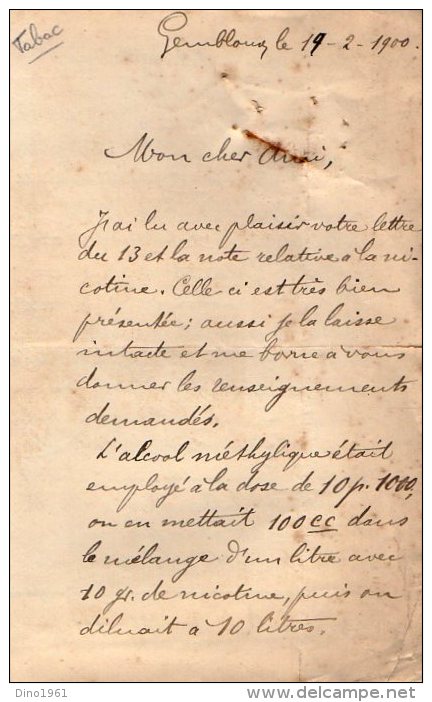 Tabac
Gembloux, le 19-2-1900.
Mon cher Ami,
J'ai lu avec plaisir votre lettre
du 13 et la note relative à la ni-
cotine. Celle ci est très bien
présentée; aussi je la laisse
intacte et me borne à vous
donner les renseignements
demandés.
L'alcool méthylique était
employé à la dose de 10 p. 1000,
on en mettait 100 cc dans
le mélange d'un litre avec
10 gr. de nicotine, puis on
diluait à 10 litres.
Dino1961
delcampe.net